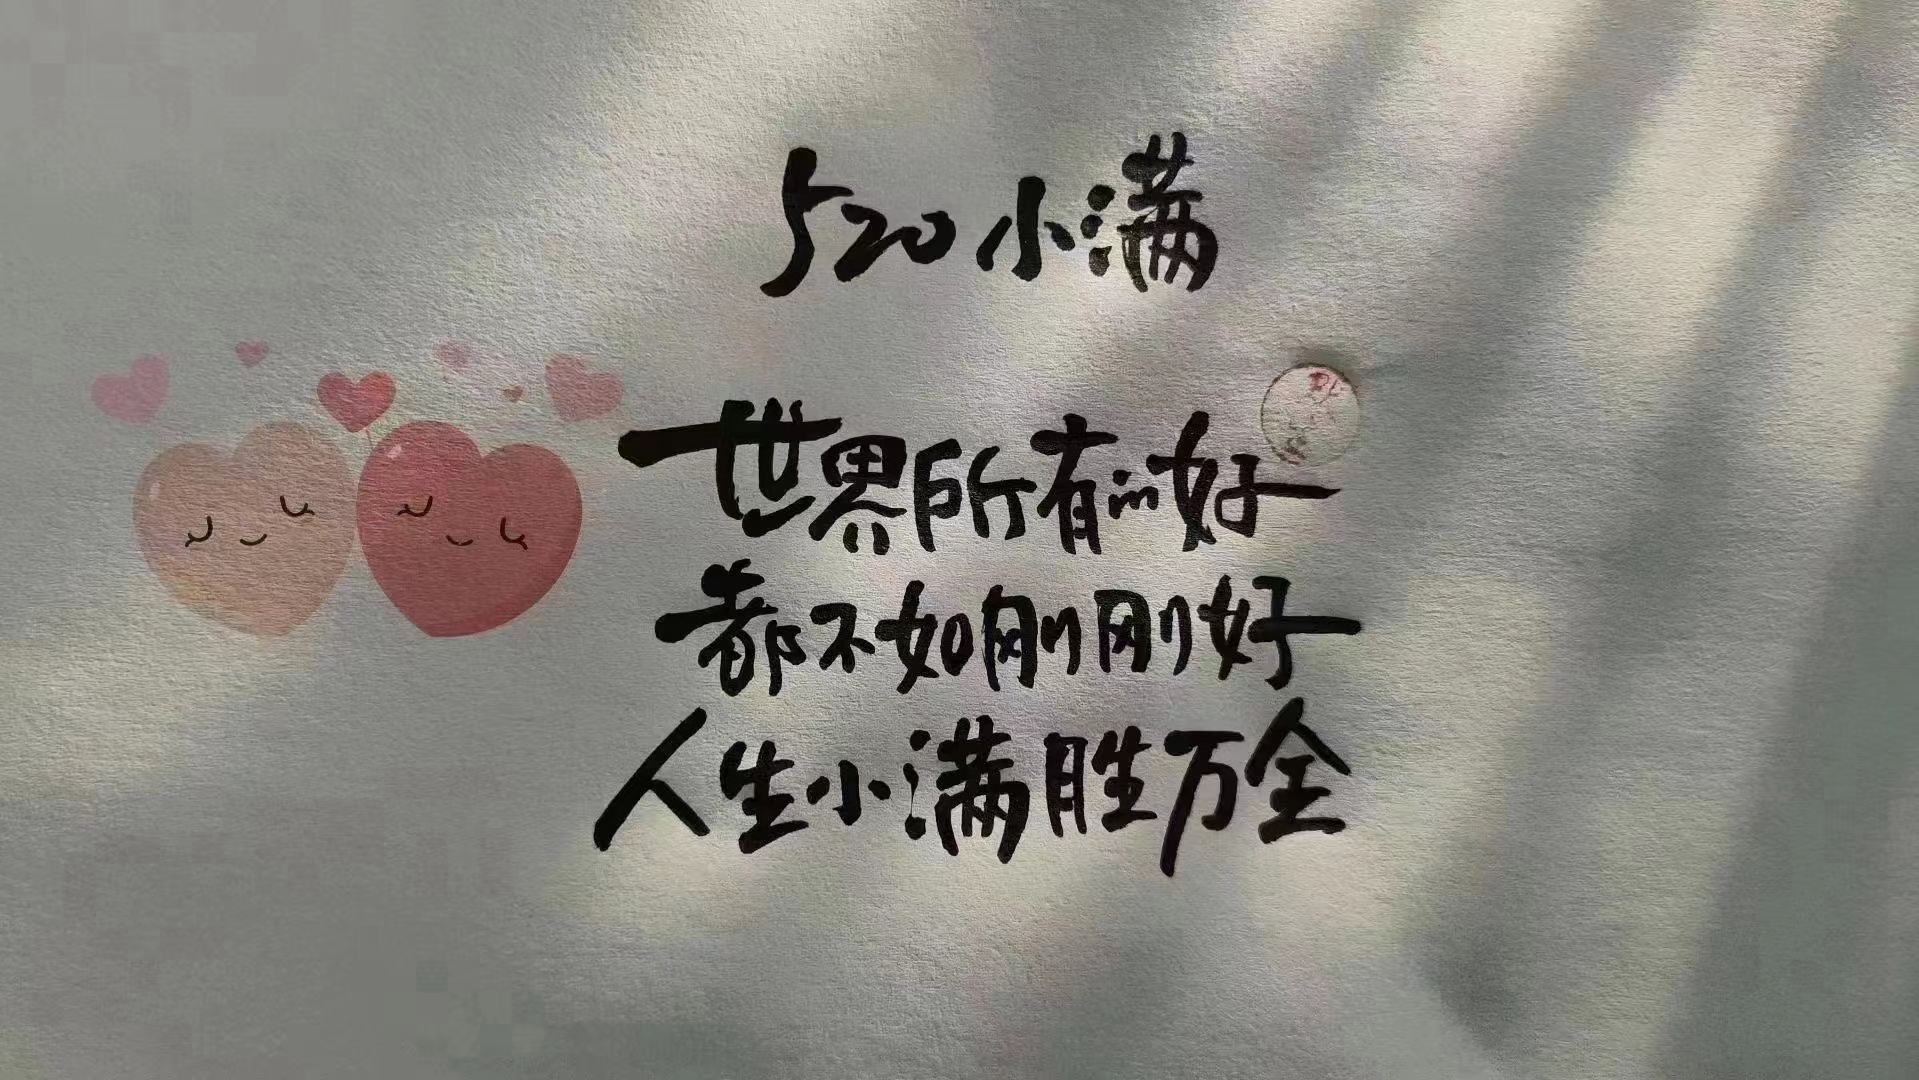 520小满
世界所有的好
都不如刚刚好
人生小满胜万全